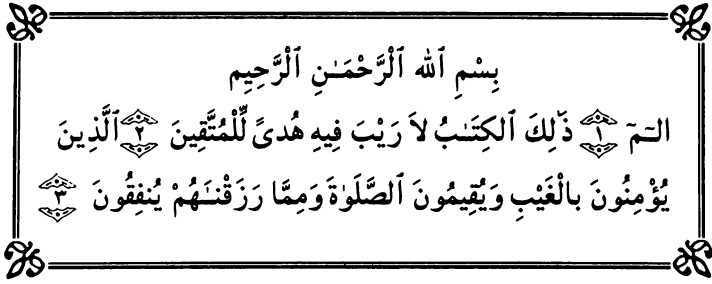 بِسْمِ ٱللهِ ٱلْرَّحْمَـٰنِ ٱلْرَّحِيمِ
الـمٓ ﴿١﴾ ذَٰلِكَ ٱلكِتَـٰبُ لاَ رَيْبَ فِيهِ هُدىً لِّلْمُتَّقِينَ ﴿٢﴾ ٱلَّذِينَ
يُؤْمِنُونَ بالْغَيْبِ وَيُقِيمُونَ ٱلصَّلَوٰةَ وَمِمَّا رَزَقْنـَٰهُمْ يُنفِقُونَ ﴿٣﴾